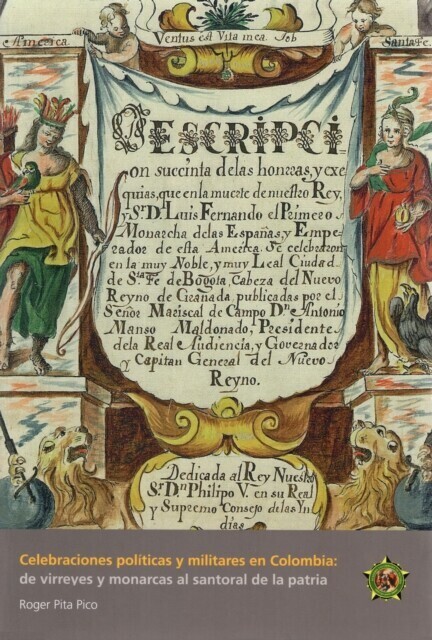 Ventus est Vita mea Job
e America.
Santa Fe.
DESCRIPCI-
on succinta de las honrras, y exe
quias, que en la muerte de nuestro Rey,
y Sr. D. Luis Fernando el Primero
Monarcha de las Españas, y Empe
rador de esta America. Se celebraron
en la muy Noble, y muy Leal Ciudad
de Sta Fe de Bogota, Cabeza del Nuevo
Reyno de Granada, publicadas por el
Señor Mariscal de Campo Dn. Antonio
Manso Maldonado, Presidente
de la Real Audiencia, y Governador
y Capitan General del Nuevo
Reyno.
Dedicada al Rey Nuestro
Sr. Dn. Philipo V. en su Real
y Supremo Consejo de las Yn
dias
Celebraciones políticas y militares en Colombia:
de virreyes y monarcas al santoral de la patria
Roger Pita Pico